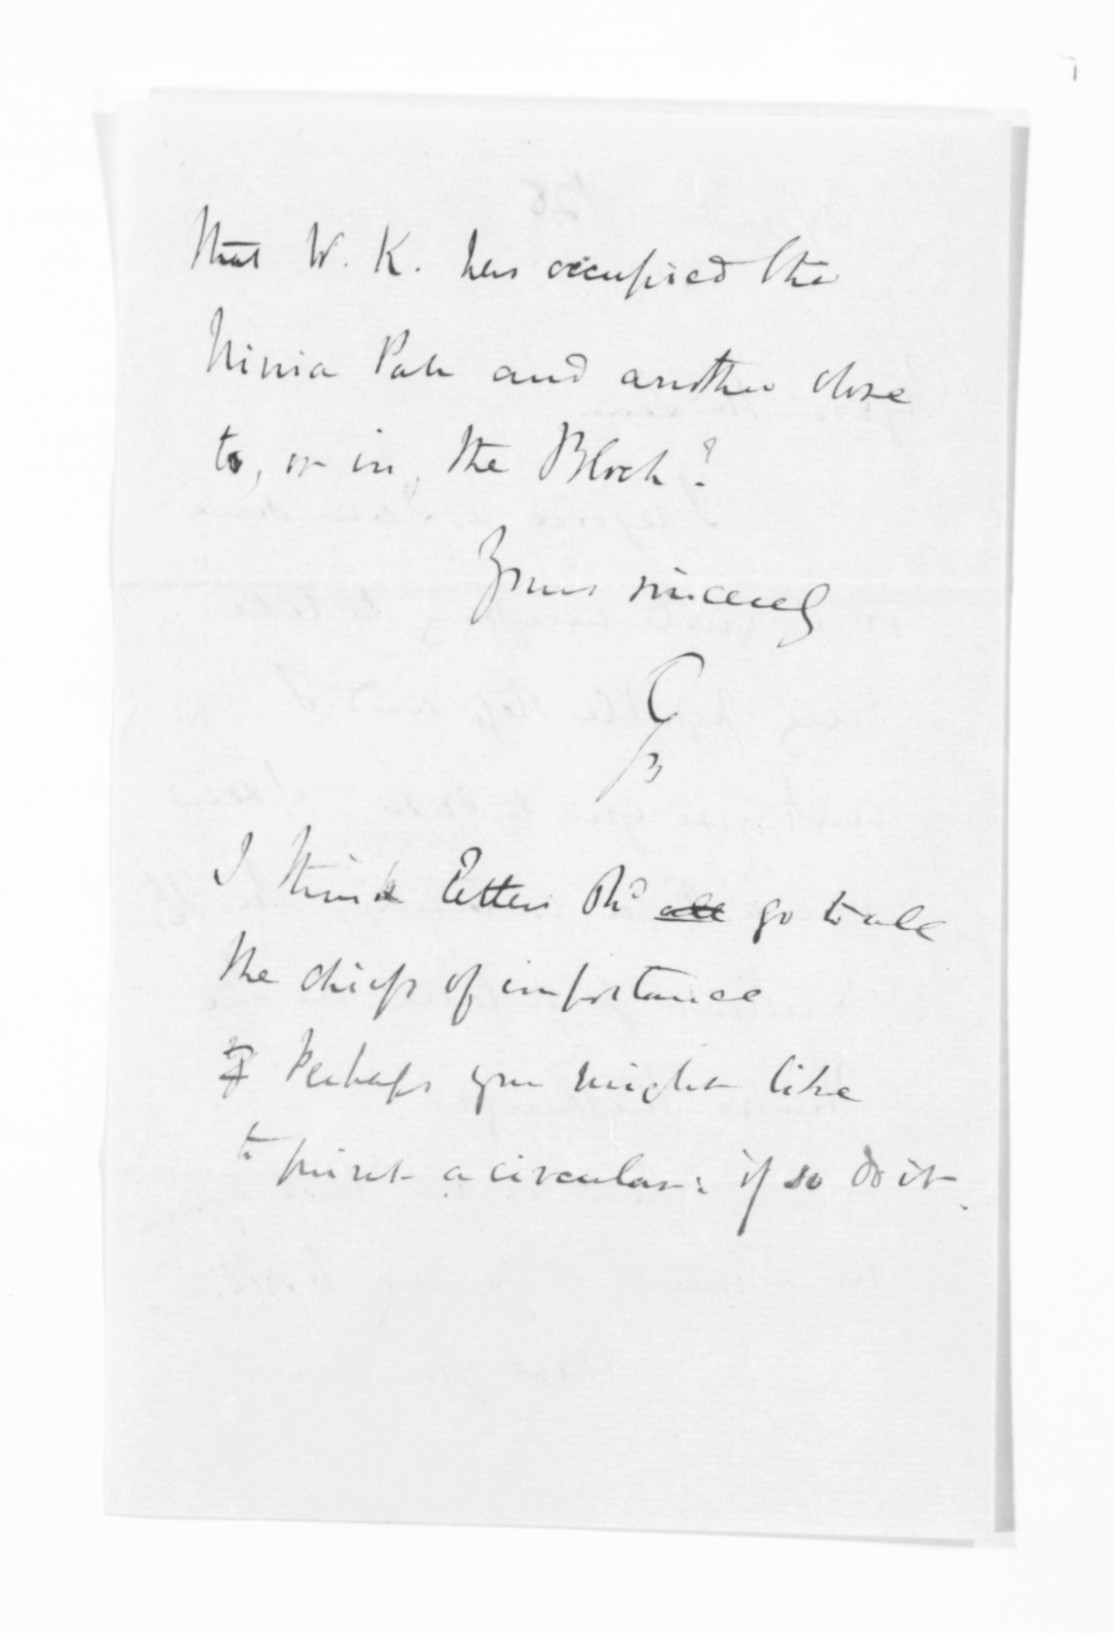 that W. K. has occupied the
Ninia Pah and another close
to, or in, the Block?
Yours sincerely
G
I think letters shd all go to all
the chiefs of importance
Perhaps you might like
to print a circular: if so do it.